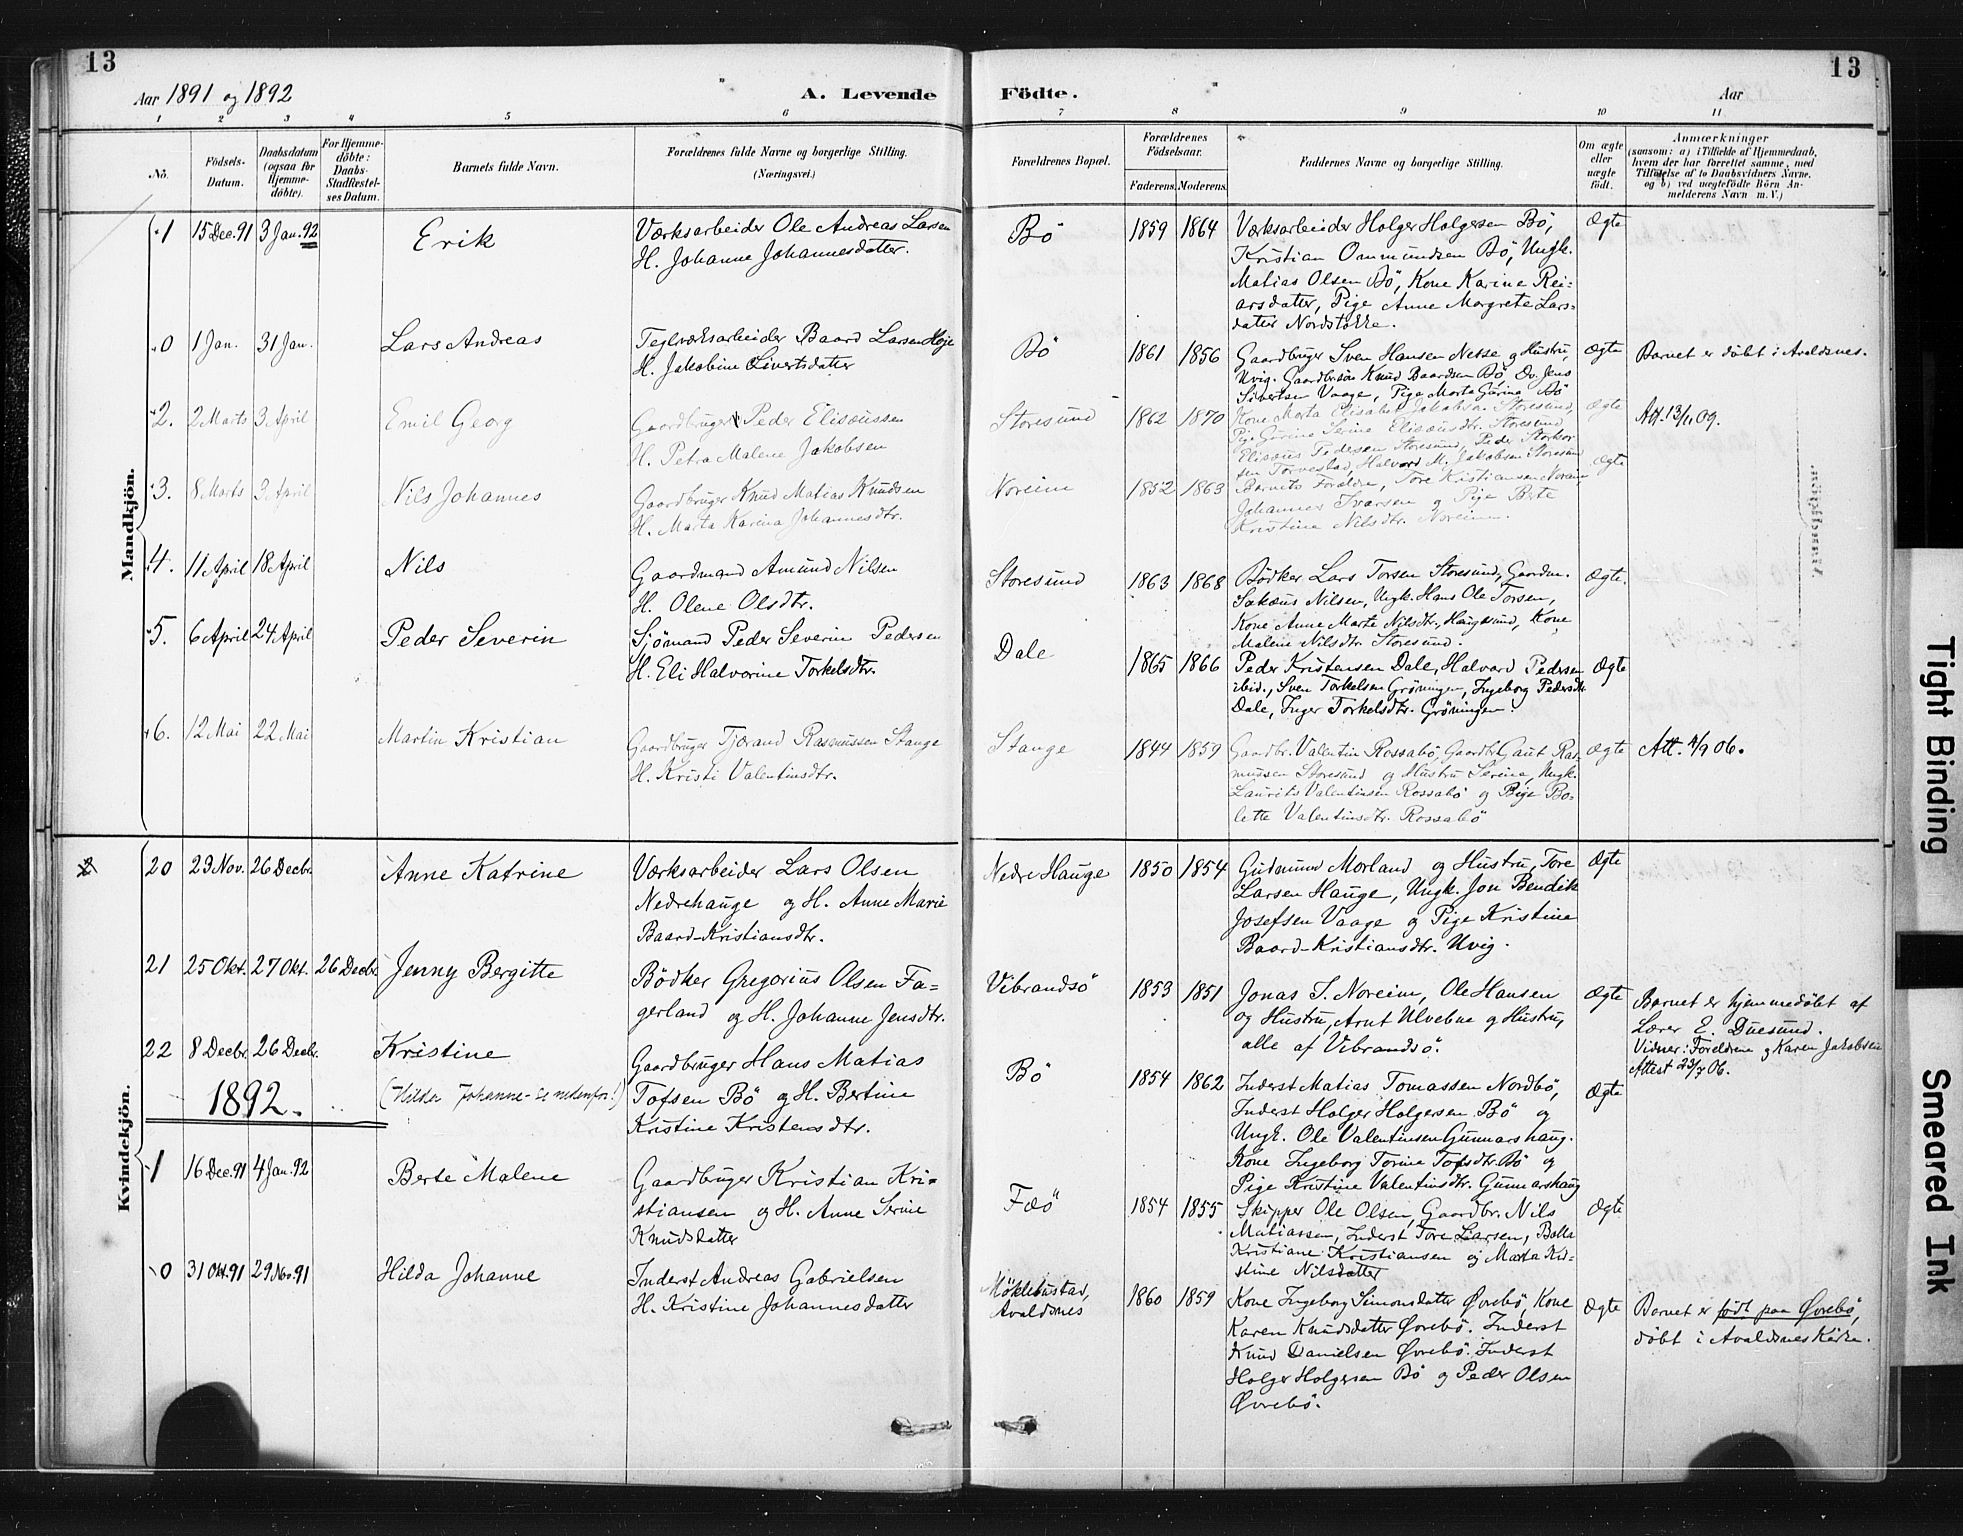 13
13
Aar 1891 og 1892
A. Levende
Födte.
Aar
1 2 3 4 5 6 7 8 9 10 11
No.
Födsels-
Datum.
Daabsdatum
(ogsaa for
Hjemme-
döbte).
For Hjemme-
döbte:
Daabs-
Stadfæstel-
ses Datum.
Barnets fulde Navn.
Forældrenes fulde Navne og borgerlige Stilling.
(Næringsvei.)
Forældrenes Bopæl.
Forældrenes
Födselsaar.
Faderens.
Moderens.
Faddernes Navne og borgerlige Stilling.
Om ægte
eller
uægte
födt.
Anmærkninger
(saasom: a) i Tilfælde af Hjemmedaab,
hvem der har forrettet samme, med
Tilföielse af to Daabsvidners Navne.
og b) ved uægtefödte Börn An-
melderens Navn m. V.)
Mandkjön.
1 15 Dec. 91 3 Jan. 92 Erik
Værksarbeider Ole Andreas Larsen
H. Johanne Johannesdatter.
Bö 1859 1864
Værksarbeider Holger Holgersen Bö,
Kristian Ommundsen Bö, Ungk.
Matias Olsen Bö, Kone Karine Rei-
arsdatter, Pige Anne Margrete Lars-
datter Nordstokke.
Ægte
0 1 Jan. 31 Jan. Lars Andreas
Teglværksarbeider Baard Larsen Høje
H. Jakobine Sivertsdatter
Bö 1861 1856
Gaardbruger Sven Hansen Nesse og Hustru,
Uvig. Gaardbesön Knud Baardsen Bö, Do. Jens
Sivertsen Vaage, Pige Marta Gurina Bö
Ægte
Barnet er döbt i Avaldsnes.
2. 2 Marts 3 April Emil Georg
Gaardbruger Peder Elisæussen
H. Petra Malene Jakobsen
Storesund 1862 1870
Kone Marta Elisabet Jakobsen Storesund,
Pige Gurine Serine Elisæusdtr. Storesund
Elisæus Pedersen Storesund, Peder Storkor-
sen Torvestad, Halvord M. Jakobsen Storesund
Ægte
Att. 13/11 09.
3. 8 Marts 3 April Nils Johannes
Gaardbruger Knud Matias Knudsen
H. Marta Karina Johannesdtr.
Noreim 1852 1863
Barnets Forældre, Tore Kristiansen Noreim
Johannes Ivarsen og Pige Berte
Kristine Nilsdtr. Noreim.
Ægte
4. 11 April 18 April Nils
Gaardmand Amund Nilsen
H. Olene Olsdtr.
Storesund 1863 1868
Bödker Lars Torsen Storesund, Gaardm.
Sakæus Nilsen, Ungk. Hans Ole Torsen,
Kone Anne Marte Nilsdtr. Haugesund, Kone
Malene Nilsdtr Storesund.
Ægte.
5. 6 April 24 April Peder Severin
Sjömand Peder Severin Pedersen
H. Eli Halvorine Torkelsdtr.
Dale 1865 1866
Peder Kristensen Dale, Halvard Pedersen
ibid., Sven Torkelsen Gröningen, Ingeborg Pedersdtr.
Dale, Inger Torkelsdtr. Gröningen.
Ægte
6. 12 Mai 22 Mai Martin Kristian
Gaardbruger Tjærand Rasmussen Stange
H. Kristi Valentinsdtr.
Stange 1844 1859
Gaardbr. Valentin Rossabö, Gaardbr. Gaut Ras-
mussen Storesund og Hustru Serine, Ungk.
Laurits Valentinsen Rossabö og Pige Bo-
lette Valentinsdtr. Rossabö
Ægte
Att. 4/9 06.
Kvindekjön.
20 23 Nov. 26 Decbr. Anne Katrine
Værksarbeider Lars Olsen
Nedrehauge og H. Anne Marie
Baard-Kristiansdtr.
Nedre Hauge 1850 1854
Gudmund Morland og Hustru, Tore
Larsen Hauge, Ungk. Jon Bendik
Josefsen Vaage og Pige Kristine
Baard-Kristiansdtr. Uvig.
Ægte
21 25 Okt. 27 Okt. 26 Decbr. Jenny Bergitte
Bödker Gregorius Olsen Fa-
gerland og H. Johanne Jensdtr.
Vibrandsö 1853 1851
Jonas S. Noreim, Ole Hansen
og Hustru, Arnt Ulvebne og Hustru,
alle af Vibrandsö.
Ægte
Barnet er hjemmedöbt af
Lærer E. Duesund.
Vidner: Foreldrene og Karen Jakobsen
Attest 23/7 06.
22 8 Decbr. 26 Decbr. Kristine
(Hilda Johanne - se nedenfor!)
Gaardbruger Hans Matias
Tofsen Bö og H. Bertine
Kristine Kristensdtr.
Bö 1854 1862
Inderst Matias Tomassen Nordbö,
Inderst Holger Holgersen Bö og
Ungk. Ole Valentinsen Gunnarshaug.
Kone Ingeborg Torine Tofsdtr. Bö og
Pige Kristine Valentinsdtr. Gunnarshaug
Ægte
1892.
1 16 Dec. 91 4 Jan. 92 Berte Malene
Gaardbruger Kristian Kri-
stiansen og H. Anne Serine
Knudsdatter
Fæö 1854 1855
Skipper Ole Olsen, Gaardbr. Nils
Matiassen, Inderst Tore Larsen, Bolla
Kristiane Kristiansen og Marta Kri-
stine Nilsdatter
Ægte
0 31 Okt. 91 29 Nov. 91 Hilda Johanne
Inderst Andreas Gabrielsen
H. Kristine Johannesdatter
Möklebustad,
Avaldsnes
1860 1859
Kone Ingeborg Simonsdatter Øvrebö, Kone
Karen Knudsdatter Øvrebö. Inderst
Knud Danielsen Øvrebö. Inderst
Holger Holgersen Bö og Peder Olsen
Øvrebö.
Ægte
Barnet er födt paa Øvrebö,
döbt i Avaldsnes Kirke.
Tight Binding
Smeared Ink